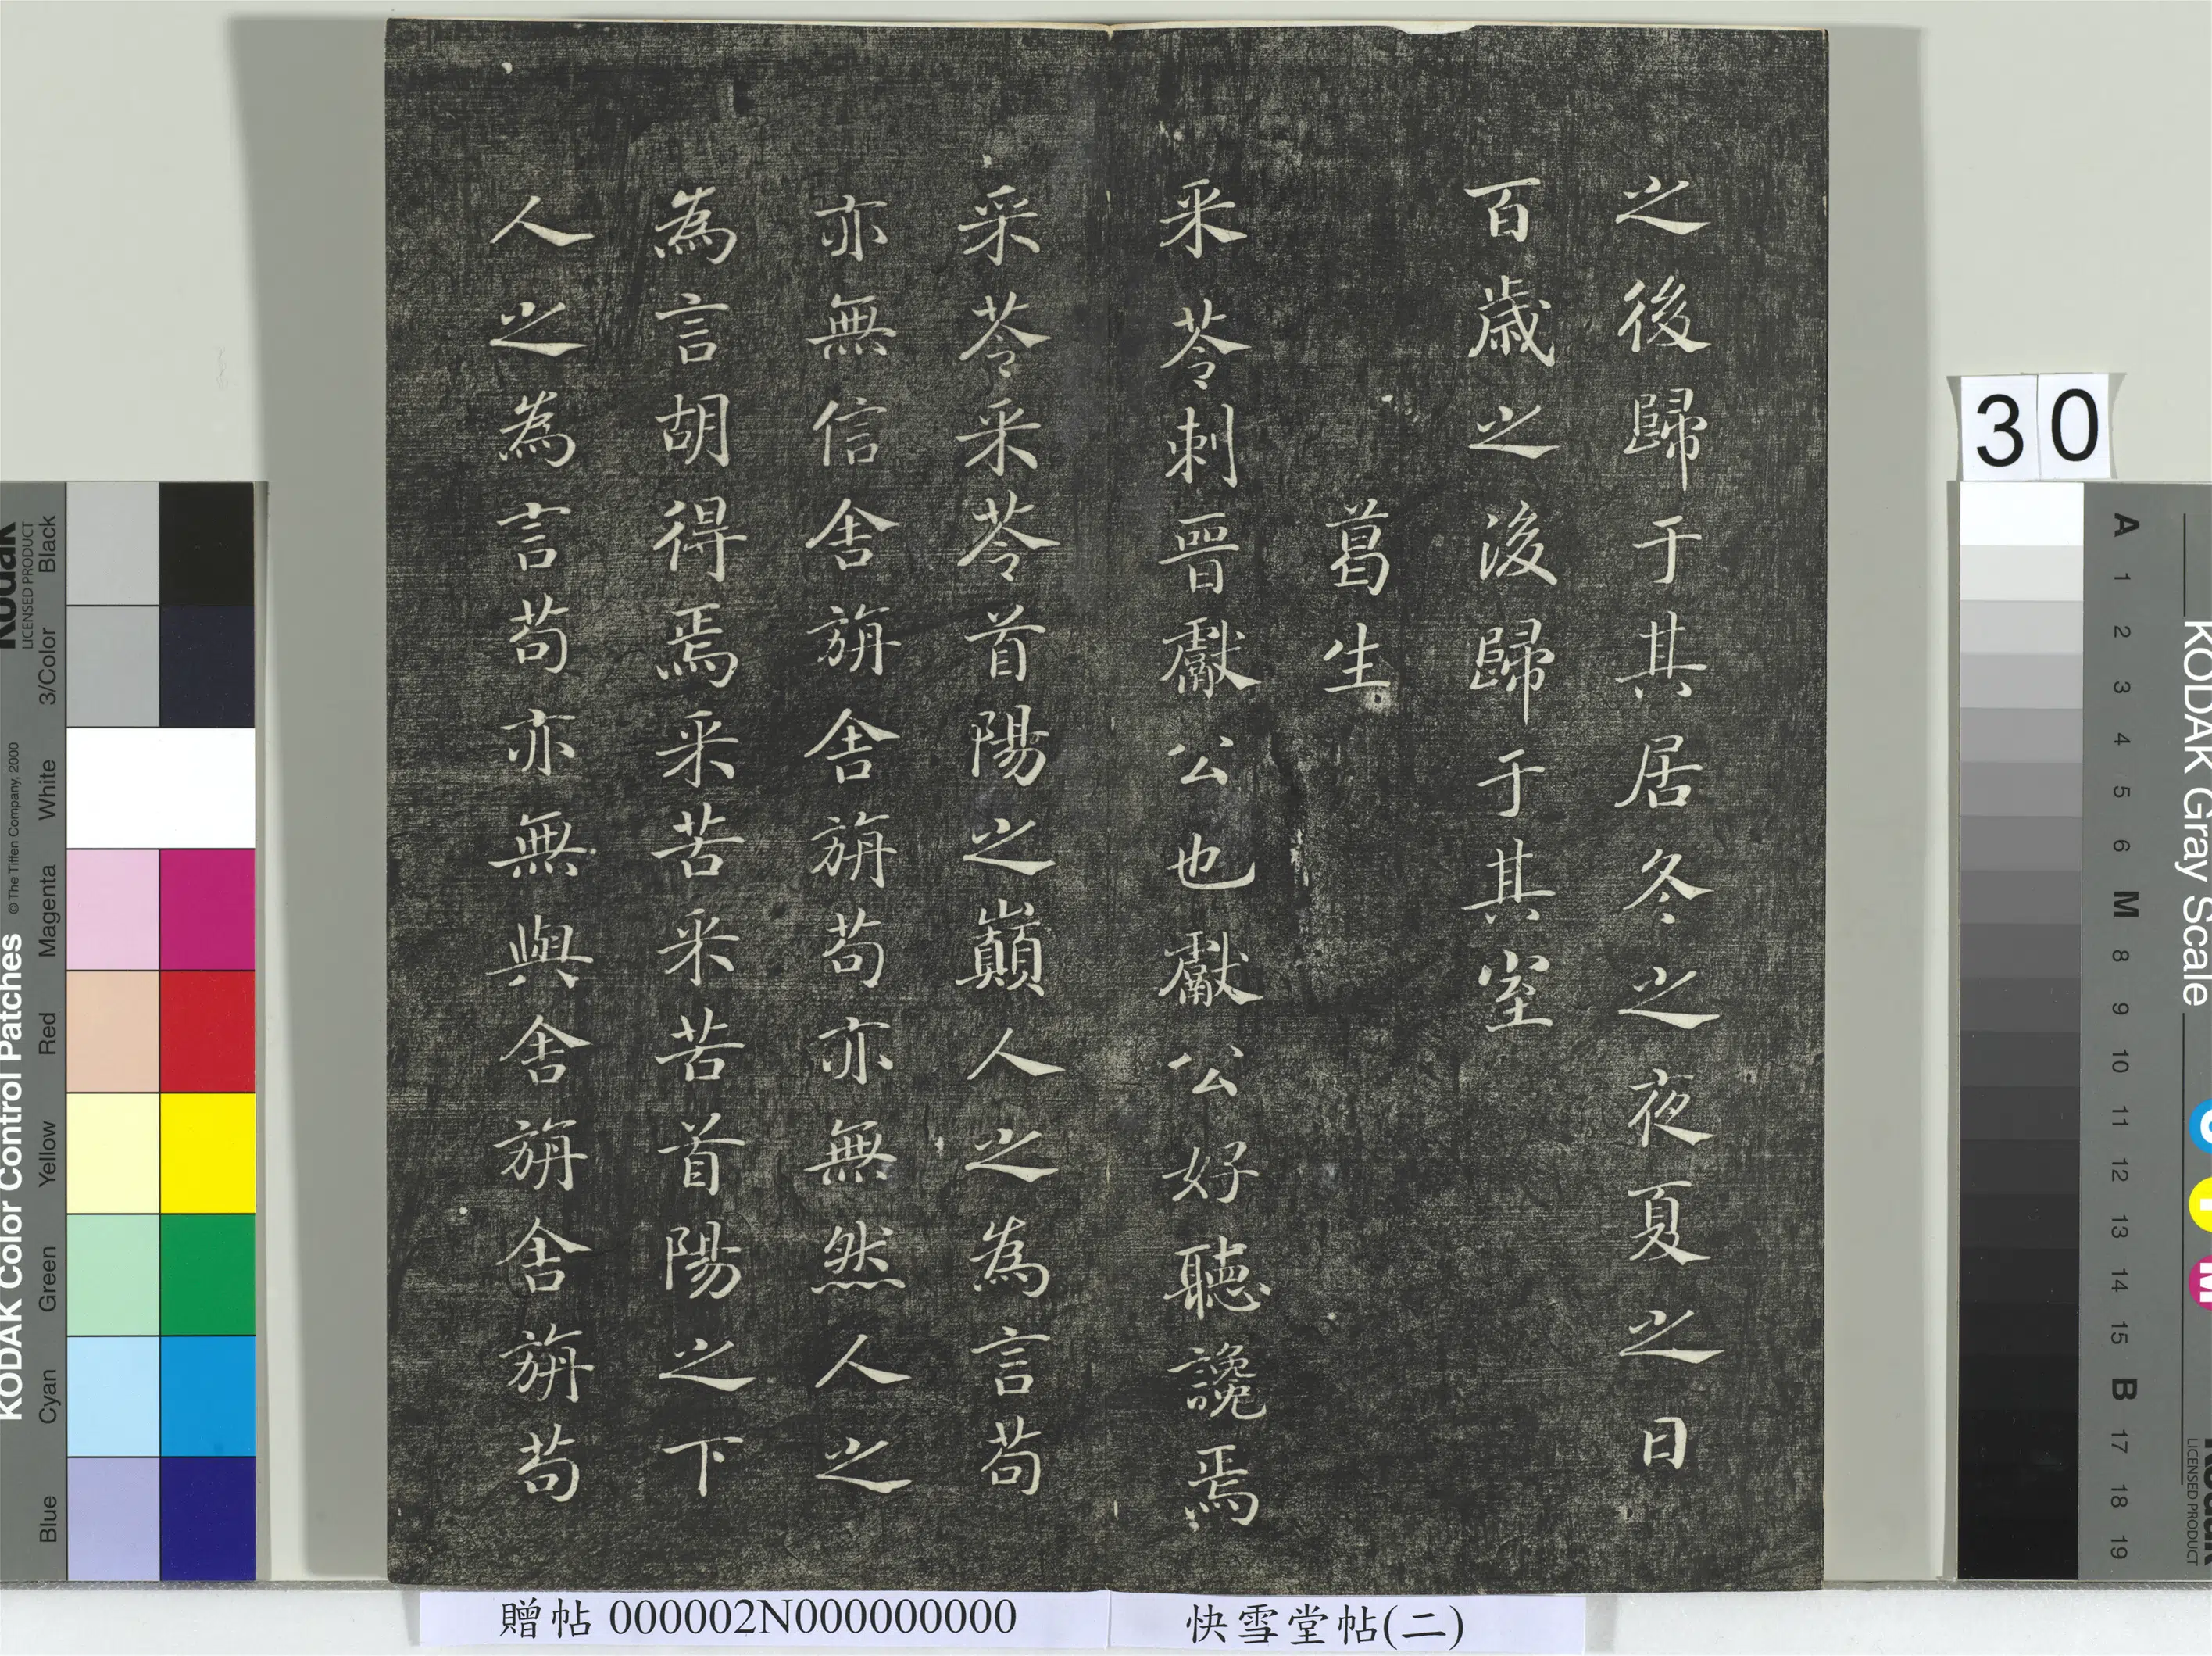 之後歸于其居冬之夜夏之日
百歲之後歸于其室
葛生
采苓刺晉獻公也獻公好聽讒焉
采苓采苓首陽之巔人之為言苟
亦無信舍旃舍旃苟亦無然人之
為言胡得焉采苦采苦首陽之下
人之為言苟亦無與舍旃舍旃苟
30
贈帖 000002N000000000
快雪堂帖(二)
KODAK Color Control Patches
© The Tiffen Company, 2000
Kodak
LICENSED PRODUCT
Black
3/Color
White
Magenta
Red
Yellow
Green
Cyan
Blue
KODAK Gray Scale
A 1 2 3 4 5 6 M 8 9 10 11 12 13 14 15 B 17 18 19
C Y M
Kodak
LICENSED PRODUCT